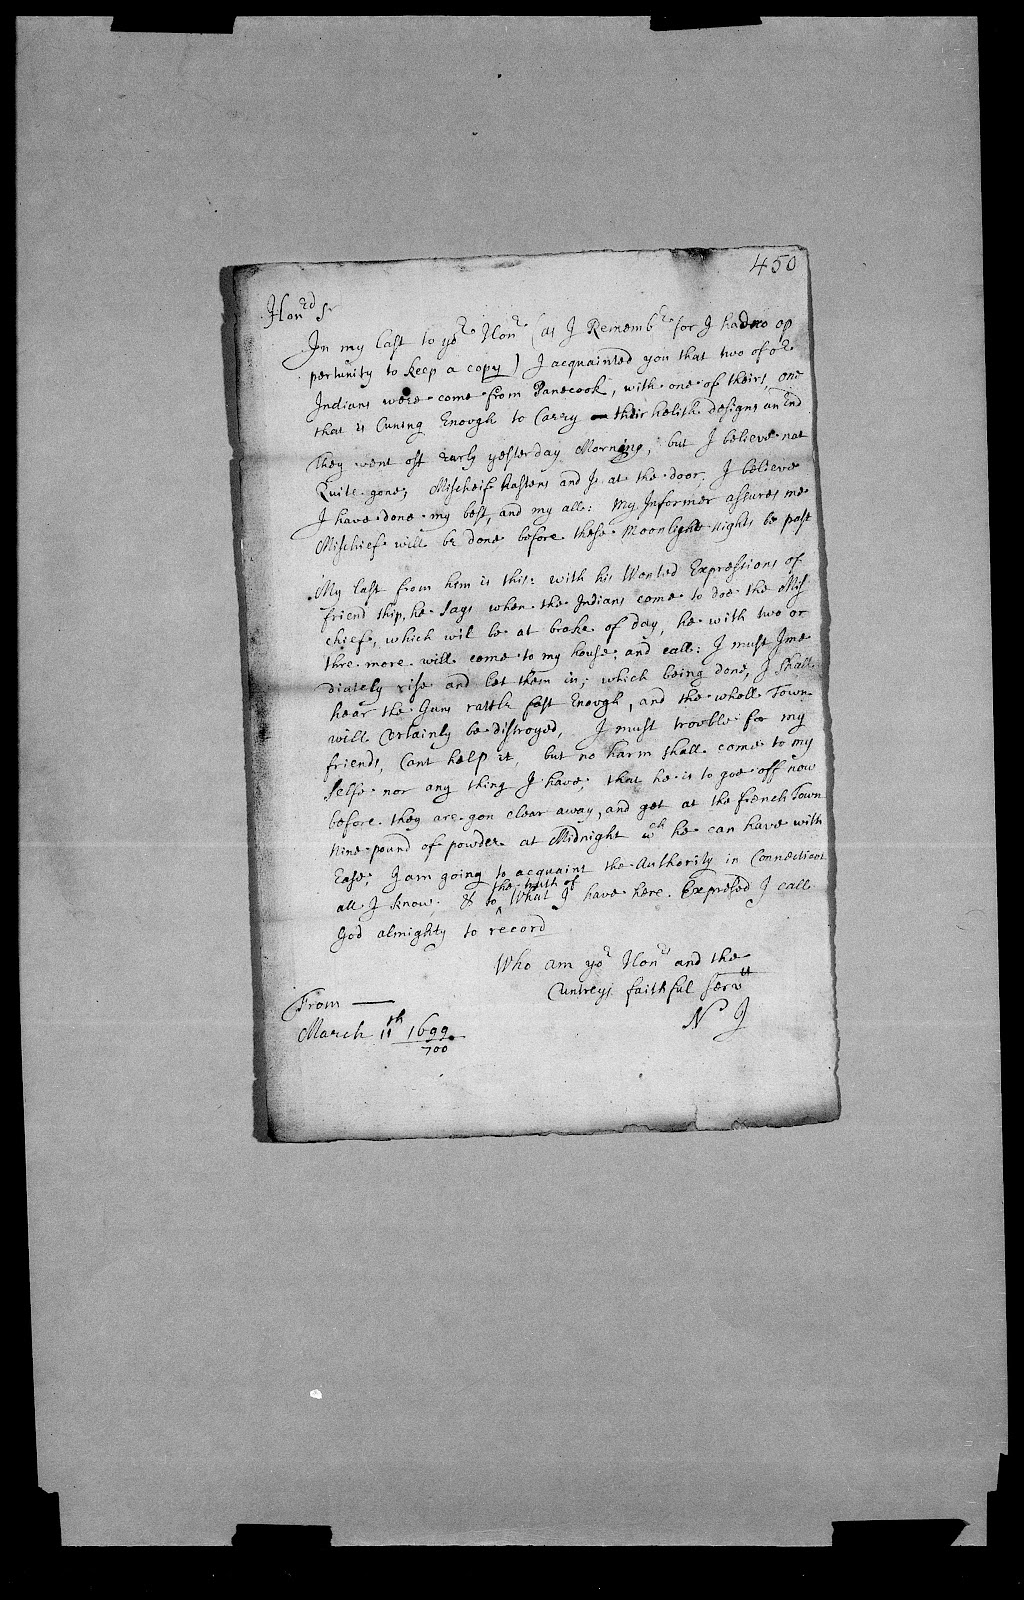 450
Honrd Sr
In my last to yor Honr (as I Remembr for I had no op
pertunity to keep a copy) I acquainted you that two of or
Indians were come from Panecook, with one of theirs, one
that is Cuning Enough to Carry their helish designs an End
They went off Early yesterday Morning, but I believe not
Quite gone; Mischeif hastens and Is at the door. I believe
I have done my best, and my all: My Informer assures me
Mischief will be done before these Moonlight nights be past
My last from him is this: with his Wonted Expressions of
friend ship, he says when the Indians come to doe the Mis
chief, which wil be at brake of day, he with two or
thre more will come to my house, and call: I must Jme
diately rise and let them in; which being done, I shall
hear the Guns rattle fast Enough, and the wholl Town
will Certainly be distroyed, I must trouble for my
friends, Cant help it, but no harm shall come to my
selfe nor any thing I have; that he is to goe off now
before they are gon clear away, and get at the french Town
Nine pound of powder at Midnight wch he can have with
Ease; I am going to acquaint the Authority in Connecticot
all I know; & to the truth of What I have here Expressed I call
God almighty to record
Who am yor Honrs and the
Cuntreys faithfull servtt
N J
From —
March 11th 1699
700